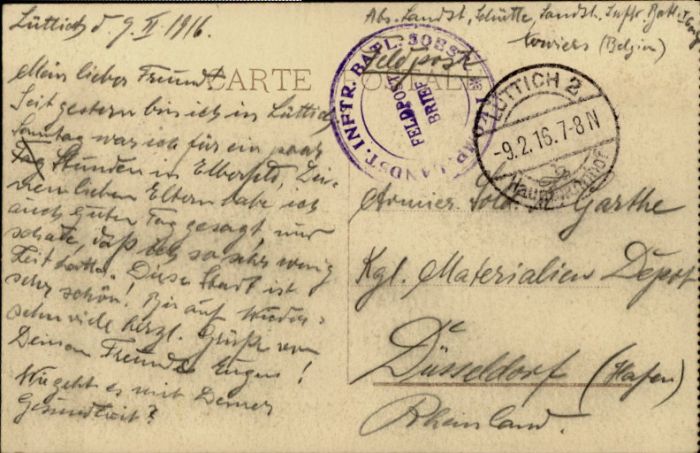 Lüttich d. 9. II. 1916.
Mein lieber Freund!
Seit gestern bin ich in Lüttich
Sonntag war ich für ein paar
Stunden in Elberfeld, Dei-
nen lieben Eltern habe ich
auch guten Tag gesagt und
schade, daß ich so sehr wenig
Zeit hatte. Diese Stadt ist
sehr schön! Bis auf Wieder-
sehn viele herzl. Grüße von
Deinem Freunde Eugen!
Wie geht es mit Deiner
Gesundheit?
CARTE POSTALE
Abs. Landst. Schütte, Landst. Inftr. Batl.
(Belgien)
Feldpost
LANDST. INFTR. BATL. SOEST
FELDPOST
BRIEF
LÜTTICH 2
-9.2.16.7-8 N
Hauptbahnhof
Armier. Sold. Garthe
Kgl. Materialien Depot
Düsseldorf (Hafen)
Rheinland.